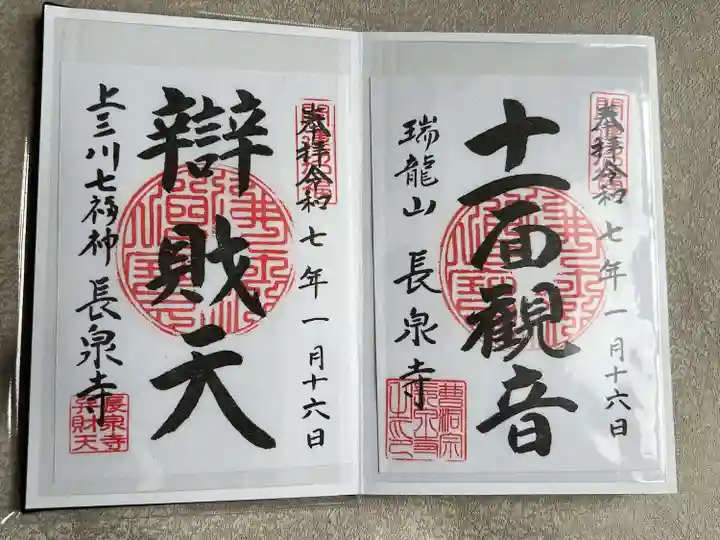 奉拝令和七年一月十六日
十一面観音
瑞龍山 長泉寺
曹洞宗
奉拝令和七年一月十六日
辯財天
上三川七福神 長泉寺
長泉寺
弁財天